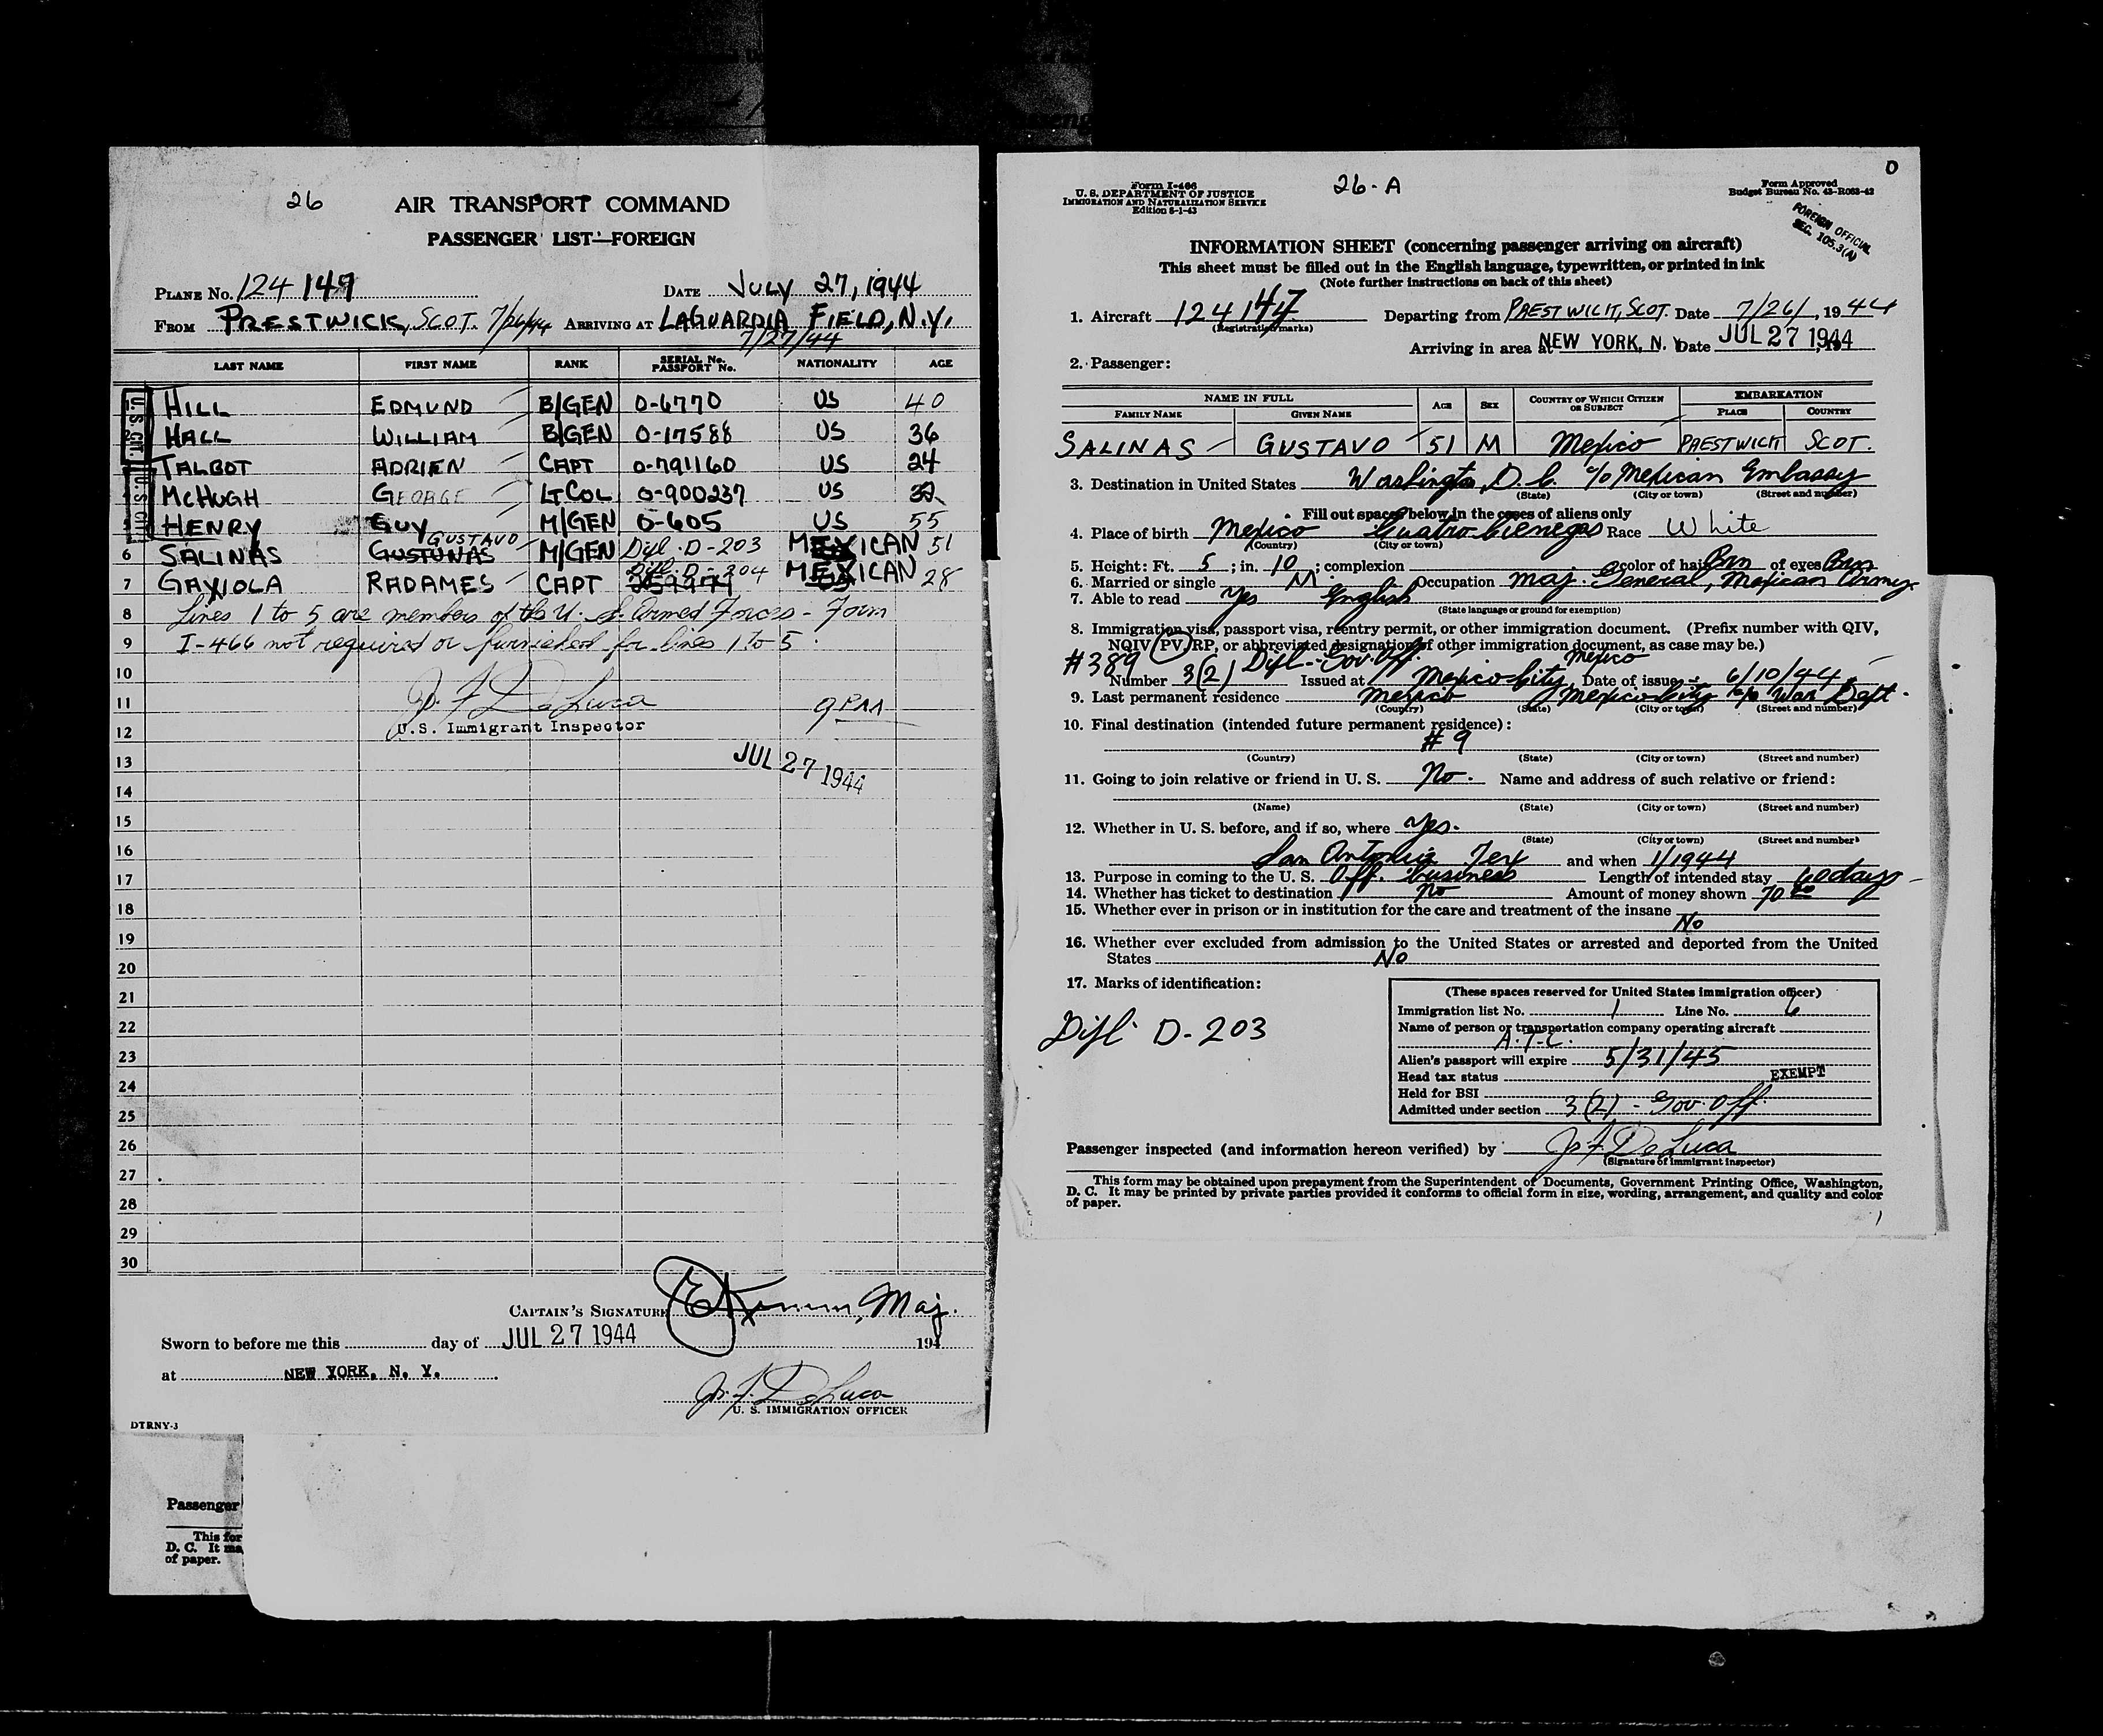 26
AIR TRANSPORT COMMAND
PASSENGER LIST—FOREIGN
PLANE No. 124 149 DATE JULY 27, 1944
FROM PRESTWICK, SCOT. 7/26/44 ARRIVING AT LAGUARDIA FIELD, N.Y.
7/27/44
LAST NAME FIRST NAME RANK SERIAL No. PASSPORT No. NATIONALITY AGE
HILL EDMUND B/GEN O-6770 US 40
HALL WILLIAM B/GEN O-17588 US 36
TALBOT ADRIEN CAPT O-791160 US 24
McHUGH GEORGE LT COL O-900237 US 32
5 HENRY GUY M/GEN O-605 US 55
GUSTAVO
6 SALINAS GUSTUNAS M/GEN Dipl. D-203 MEXICAN 51
7 GAXIOLA RADAMES CAPT Dipl. D-204 MEXICAN 28
8 Lines 1 to 5 are members of the U. S. Armed Forces - Form
9 I-466 not required or furnished for lines 1 to 5.
10
11 J. F. DeLuca 9 PM
12 U.S. Immigrant Inspector
13 JUL 27 1944
14
15
16
17
18
19
20
21
22
23
24
25
26
27
28
29
30
CAPTAIN'S SIGNATURE Maj.
Sworn to before me this day of JUL 27 1944 194
at NEW YORK, N. Y.
J. F. DeLuca
U. S. IMMIGRATION OFFICER
DTRNY-3
Passenger
This for
D. C. It ma
of paper.
O
Form I-466
U. S. DEPARTMENT OF JUSTICE
IMMIGRATION AND NATURALIZATION SERVICE
Edition 8-1-43
26-A
Form Approved
Budget Bureau No. 43-R053-43
FOREIGN OFFICIAL
SEC. 105.3(A)
INFORMATION SHEET (concerning passenger arriving on aircraft)
This sheet must be filled out in the English language, typewritten, or printed in ink
(Note further instructions on back of this sheet)
1. Aircraft 124147 Departing from PRESTWICK, SCOT. Date 7/26/, 1944
(Registration marks)
Arriving in area at NEW YORK, N. Y. Date JUL 27 1944
2. Passenger:
NAME IN FULL AGE SEX COUNTRY OF WHICH CITIZEN OR SUBJECT EMBARKATION
FAMILY NAME GIVEN NAME PLACE COUNTRY
SALINAS GUSTAVO 51 M Mexico PRESTWICK SCOT.
3. Destination in United States Washington, D. C. % Mexican Embassy
(State) (City or town) (Street and number)
Fill out spaces below in the cases of aliens only
4. Place of birth Mexico Cuatro Cienegas Race White
(Country) (City or town)
5. Height: Ft. 5; in. 10; complexion color of hair Brn of eyes Brn
6. Married or single M Occupation Maj. General, Mexican Army
7. Able to read Yes English
(State language or ground for exemption)
8. Immigration visa, passport visa, reentry permit, or other immigration document. (Prefix number with QIV,
NQIV, PV, RP, or abbreviated designation of other immigration document, as case may be.)
#389 3(2) Dipl - Gov. Off. Mexico
Number Issued at Mexico City, Date of issue 6/10/44
9. Last permanent residence Mexico Mexico City c/o War Dept.
(Country) (State) (City or town) (Street and number)
10. Final destination (intended future permanent residence):
#9
(Country) (State) (City or town) (Street and number)
11. Going to join relative or friend in U. S. No. Name and address of such relative or friend:
(Name) (State) (City or town) (Street and number)
12. Whether in U. S. before, and if so, where Yes.
(State) (City or town) (Street and number)
San Antonio Tex and when 1/1944
13. Purpose in coming to the U. S. Off. business Length of intended stay 60 days
14. Whether has ticket to destination No Amount of money shown 70 00
15. Whether ever in prison or in institution for the care and treatment of the insane
No
16. Whether ever excluded from admission to the United States or arrested and deported from the United
States No
17. Marks of identification:
Dipl. D-203
(These spaces reserved for United States immigration officer)
Immigration list No. 1 Line No. 6
Name of person or transportation company operating aircraft
A.T.C.
Alien's passport will expire 5/31/45
Head tax status EXEMPT
Held for BSI
Admitted under section 3(2) - Gov. Off.
Passenger inspected (and information hereon verified) by J. F. DeLuca
(Signature of immigrant inspector)
This form may be obtained upon prepayment from the Superintendent of Documents, Government Printing Office, Washington,
D. C. It may be printed by private parties provided it conforms to official form in size, wording, arrangement, and quality and color
of paper.
1